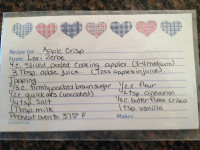 Recipe for: Apple Crisp
From: Lori Zerbe
4 c. sliced, peeled cooking apples (3-4 medium)
3 Tbsp. apple juice (Toss apples in juice).
Topping
1/3 c. firmly packed brown sugar 1/2 c. flour
1/2 c. quick oats (uncooked) 1/2 tsp. cinnamon
1/4 tsp. salt 1/4 c. butter flavor Crisco
1 Tbsp. milk 1 tsp. vanilla
Preheat oven to 375° F Makes: